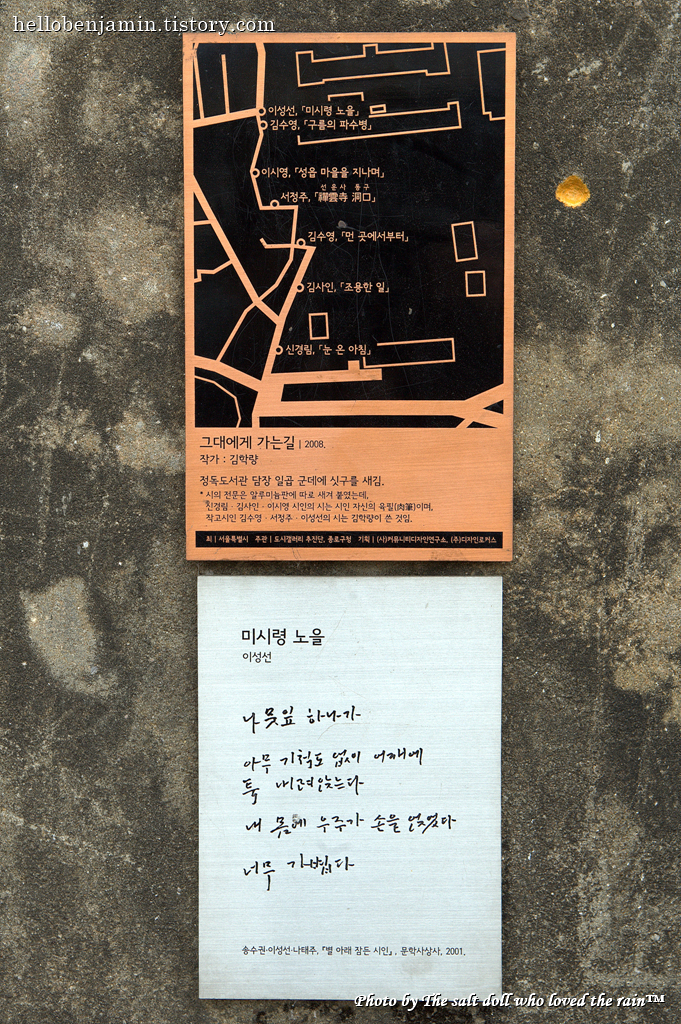 hellobenjamin.tistory.com
이성선, 「미시령 노을」
김수영, 「구름의 파수병」
이시영, 「성읍 마을을 지나며」
선운사 동구
서정주, 「禪雲寺 洞口」
김수영, 「먼 곳에서부터」
김사인, 「조용한 일」
신경림, 「눈 온 아침」
그대에게 가는길 | 2008.
작가 : 김학량
정독도서관 담장 일곱 군데에 싯구를 새김.
* 시의 전문은 알루미늄판에 따로 새겨 붙였는데,
신경림 · 김사인 · 이시영 시인의 시는 시인 자신의 육필(肉筆)이며,
작고시인 김수영 · 서정주 · 이성선의 시는 김학량이 쓴 것임.
최 | 서울특별시 주관 | 도시갤러리 추진단, 종로구청 기획 | (사)커뮤니티디자인연구소, (주)디자인로커스
미시령 노을
이성선
나뭇잎 하나가
아무 기척도 없이 어깨에
툭 내려앉는다
내 몸에 우주가 손을 얹었다
너무 가볍다
송수권·이성선·나태주, 『별 아래 잠든 시인』, 문학사상사, 2001.
Photo by The salt doll who loved the rain™